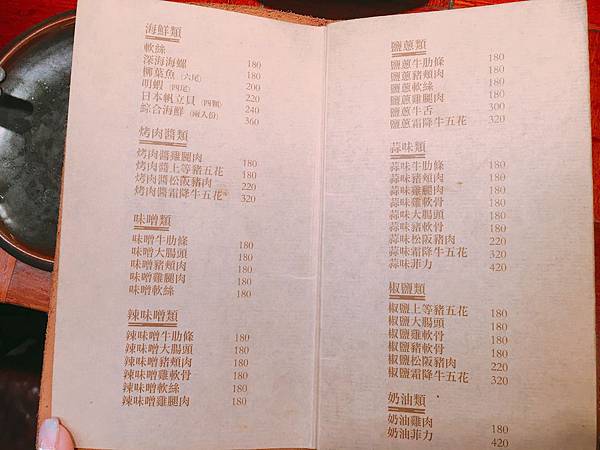 海鮮類
軟絲 180
深海海螺 180
柳葉魚(六尾) 200
明蝦(四尾) 220
日本帆立貝(四顆) 240
綜合海鮮(兩人份) 360
烤肉醬類
烤肉醬雞腿肉 180
烤肉醬上等豬五花 180
烤肉醬松阪豬肉 220
烤肉醬霜降牛五花 320
味噌類
味噌牛肋條 180
味噌大腸頭 180
味噌豬頰肉 180
味噌雞腿肉 180
味噌軟絲 180
辣味噌類
辣味噌牛肋條 180
辣味噌大腸頭 180
辣味噌豬頰肉 180
辣味噌雞軟骨 180
辣味噌軟絲 180
辣味噌雞腿肉 180
鹽蔥類
鹽蔥牛肋條 180
鹽蔥豬頰肉 180
鹽蔥軟絲 180
鹽蔥雞腿肉 180
鹽蔥牛舌 300
鹽蔥霜降牛五花 320
蒜味類
蒜味牛肋條 180
蒜味豬頰肉 180
蒜味雞腿肉 180
蒜味雞軟骨 180
蒜味大腸頭 180
蒜味豬軟骨 180
蒜味松阪豬肉 220
蒜味霜降牛五花 320
蒜味菲力 420
椒鹽類
椒鹽上等豬五花 180
椒鹽大腸頭 180
椒鹽雞軟骨 180
椒鹽豬軟骨 180
椒鹽松阪豬肉 220
椒鹽霜降牛五花 320
奶油類
奶油雞肉 180
奶油菲力 420